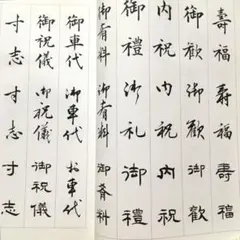 壽福 壽福 壽福
御歓 御歓 御歓
内祝 内祝 内祝
御禮 御礼 御禮
御肴料 御肴料 御肴料
御車代 御車代 お車代
御祝儀 御祝儀 御祝儀
寸志 寸志 寸志